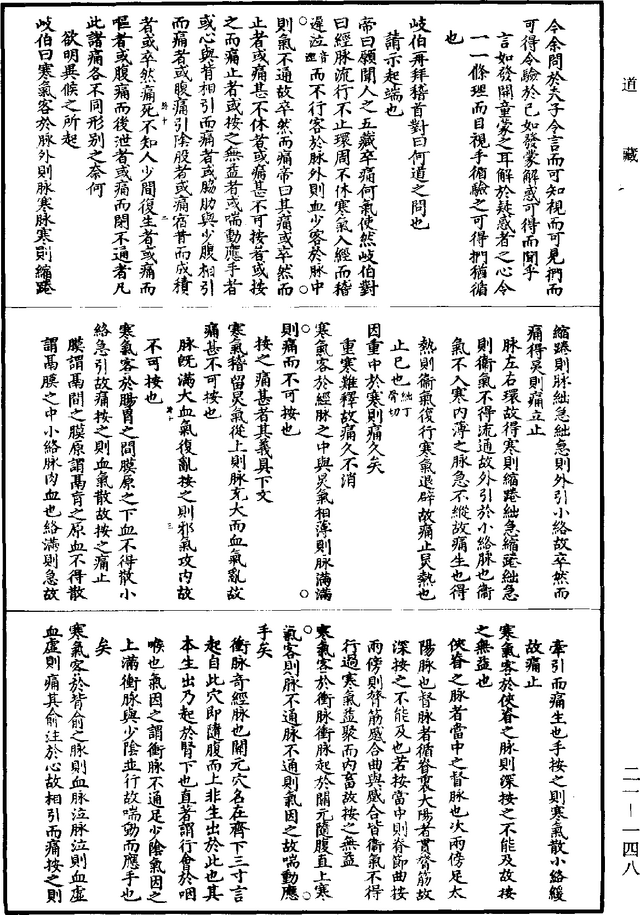 道藏
今余問於夫子令言而可知視而可見捫而
可得令驗於已如發蒙解惑可得而聞乎
言如發開童蒙之耳解於疑惑者之心令
一一條理而目視手循驗之可得捫猶循
也
岐伯再拜稽首對曰何道之問也
請示起端也
帝曰願聞人之五藏卒痛何氣使然岐伯對
曰經脉流行不止環周不休寒氣入經而稽
遲泣音澀而不行客於脉外則血少客於脉中
則氣不通故卒然而痛帝曰其痛或卒然而
止者或痛甚不休者或痛甚不可按者或按
之而痛止者或按之無益者或喘動應手者
或心與背相引而痛者或脇肋與少腹相引
而痛者或腹痛引陰股者或痛宿昔而成積
者或卒然痛死不知人少間復生者或痛而
嘔者或腹痛而後泄者或痛而閉不通者凡
此諸痛各不同形別之奈何
欲明異候之所起
岐伯曰寒氣客於脉外則脉寒脉寒則縮踡
縮踡則脉絀急絀急則外引小絡故卒然而
痛得炅則痛立止
脉左右環故得寒則縮踡絀急縮踡絀急
則衛氣不得流通故外引於小絡脉也衛
氣不入寒内薄之脉急不縱故痛生也得
熱則衛氣復行寒氣退辟故痛止炅熱也
止已也絀丁骨切
因重中於寒則痛久矣
重寒難釋故痛久不消
寒氣客於經脉之中與炅氣相薄則脉滿滿
則痛而不可按也
按之痛甚者其義具下文
寒氣稽留炅氣從上則脉充大而血氣亂故
痛甚不可按也
脉既滿大血氣復亂按之則邪氣攻内故
不可按也
寒氣客於腸胃之間膜原之下血不得散小
絡急引故痛按之則血氣散故按之痛止
膜謂鬲間之膜原謂鬲肓之原血不得散
謂鬲膜之中小絡脉内血也絡滿則急故
牽引而痛生也手按之則寒氣散小絡緩
故痛止
寒氣客於俠脊之脉則深按之不能及故按
之無益也
俠脊之脉者當中之督脉也次兩傍足太
陽脉也督脉者循脊裏大陽者貫膂筋故
深按之不能及也若按當中則脊節曲按
兩傍則膂筋感合曲與感合皆衛氣不得
行過寒氣益聚而内畜故按之無益
寒氣客於衝脉衝脉起於關元隨腹直上寒
氣客則脉不通脉不通則氣因之故喘動應
手矣
衝脉奇經脉也關元穴名在齊下三寸言
起自此穴即隨腹而上非生出於此也其
本生出乃起於腎下也直者謂行會於咽
喉也氣因之謂衝脉不通足少陰氣因之
上滿衝脉與少陰並行故喘動而應手也
矣
寒氣客於背俞之脉則血脉泣脉泣則血虛
血虛則痛其俞注於心故相引而痛按之則
二一—一四八